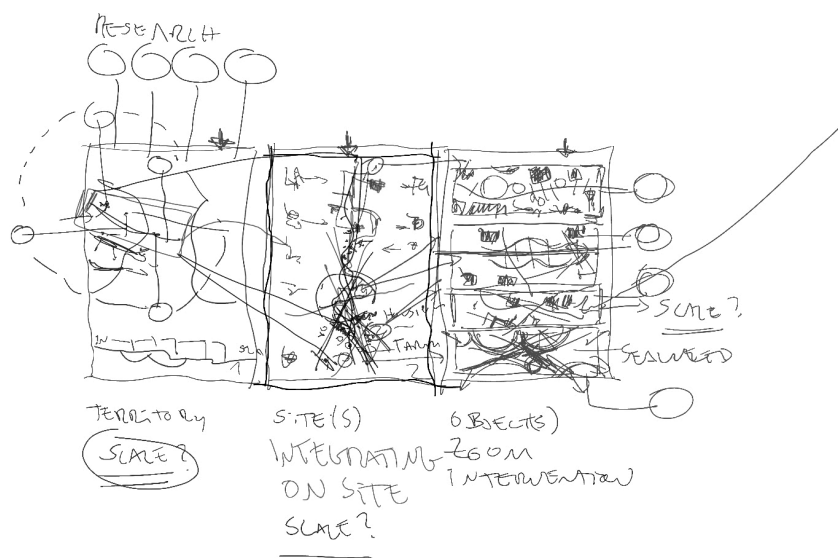 RESEARCH
SCALE?
SEAWEED
TERRITORY
SCALE?
SITE(S)
INTEGRATING
ON SITE
SCALE?
OBJECT(S)
ZOOM
INTERVENTION